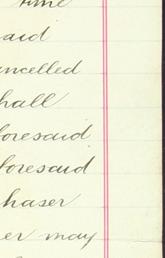 time
aid
ancelled
hall
foresaid
foresaid
haser
er may